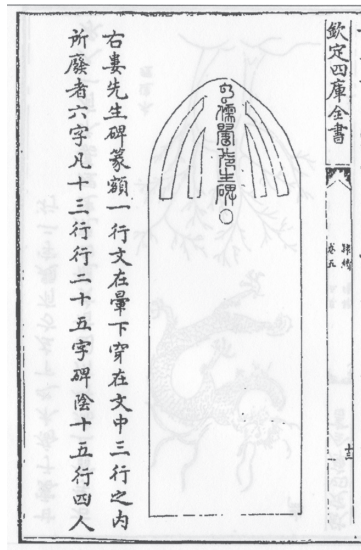 欽定四庫全書
隸續
卷五
十三
右婁先生碑篆額一行文在暈下穿在文中三行之内
所廢者六字凡十三行行二十五字碑陰十五行四人